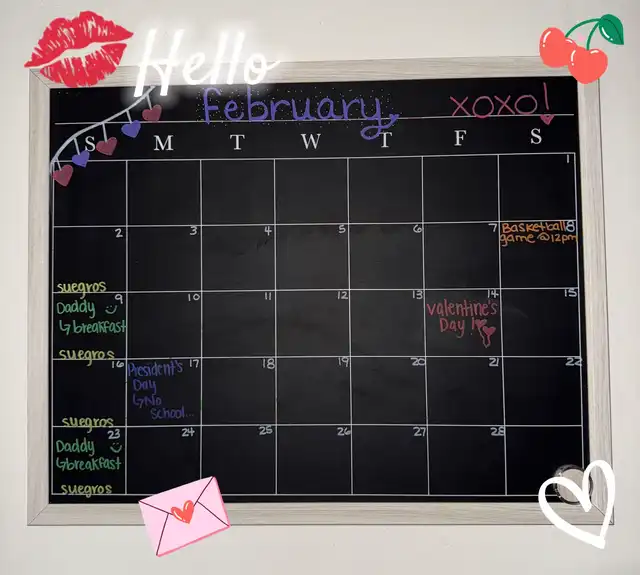 Hello
february
xoxo!
S M T W T F S
1
2 3 4 5 6 7 8
Basketball
game @ 12pm
suegros
9 10 11 12 13 14 15
Daddy
↳breakfast
valentine's
Day !
suegros
16 17 18 19 20 21 22
President's
Day
↳No
School...
suegros
23 24 25 26 27 28
Daddy
↳breakfast
suegros